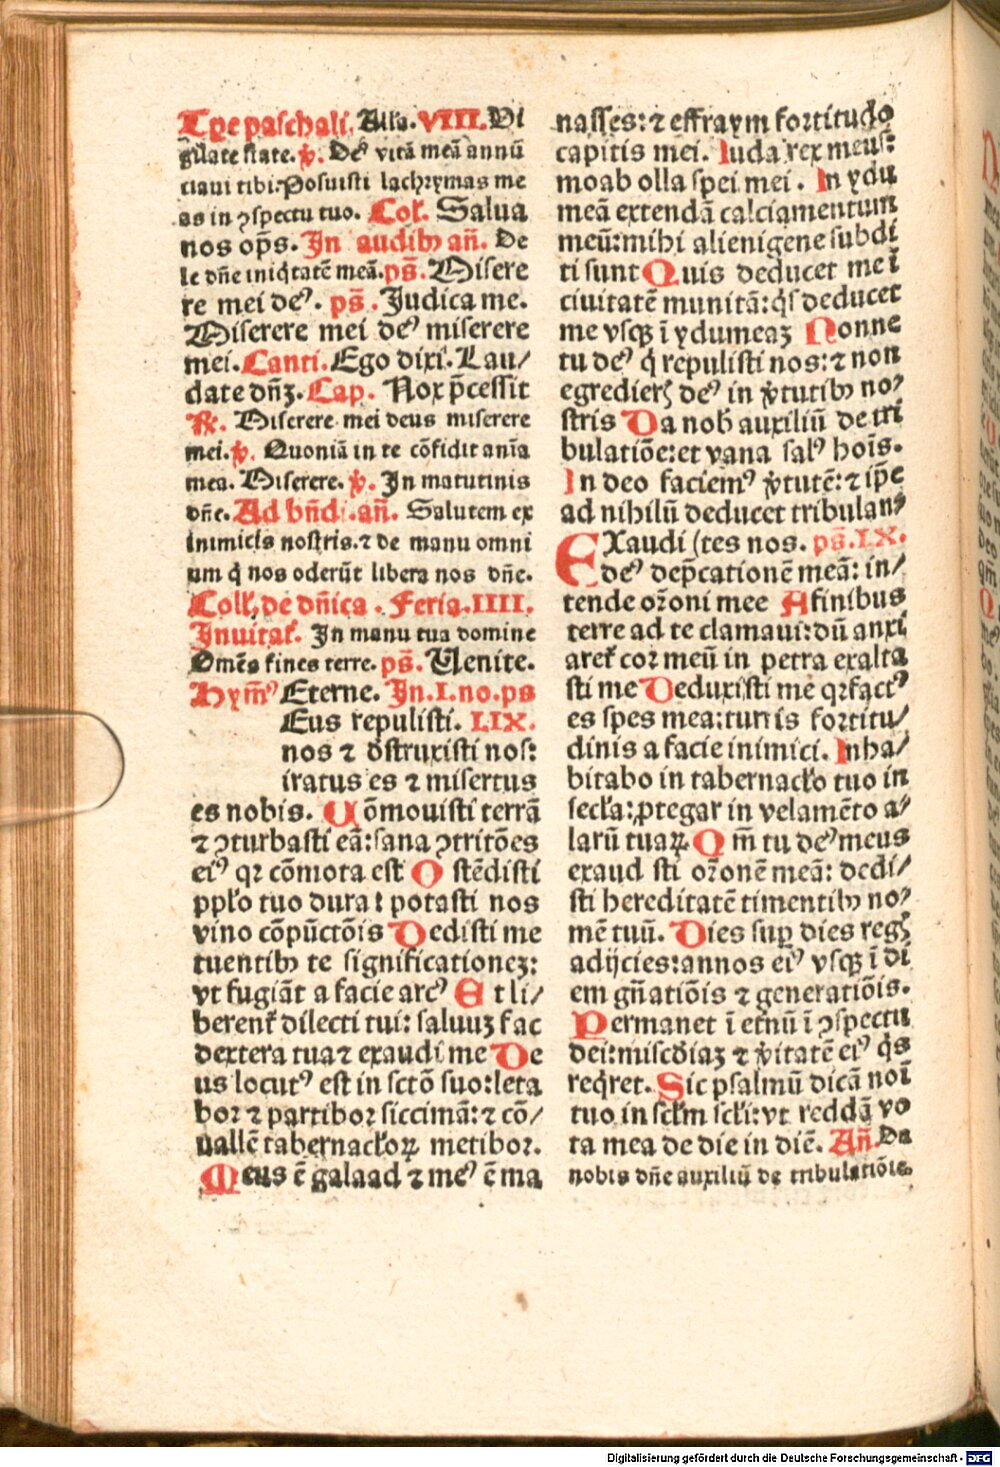 Tpe paschali. Alla. VIII. Di
gilate state. ꝟ. De⁹ vitā meā annū
ciaui tibi: Posuisti lachrymas me
as in ↄspectu tuo. Col̄. Salua
nos op̄s. In audibꝫ an̄. De
le dn̄e iniq̄tatē meā. ps̄. Misere
re mei de⁹. ps̄. Judica me.
Miserere mei de⁹ miserere
mei. Canti. Ego dixi. Lau/
date dn̄ꝫ. Cap. Nox p̄cessit
℟. Miserere mei deus miserere
mei. ꝟ. Quoniā in te cōfidit an̄a
mea. Miserere. ꝟ. In matutinis
dn̄e. Ad bn̄d. an̄. Salutem ex
inimicis nostris. ⁊ de manu omni
um q̄ nos oderūt libera nos dn̄e.
Coll. de dn̄ica. Feria. IIII.
Inuitat̄. In manu tua domine
Omēs fines terre. ps̄. Uenite.
Hym̄⁹ Eterne. In. I. no. ps
Eus repulisti. LIX.
nos ⁊ d̄struxisti nos:
iratus es ⁊ misertus
es nobis. Cōmouisti terrā
⁊ ↄturbasti eā: sana ↄtritōes
ei⁹ qꝛ cōmota est Ostēdisti
pplo tuo dura: potasti nos
vino cōpūctōis Dedisti me
tuentibꝫ te significationeꝫ:
vt fugiāt a facie arc⁹ Et li/
berent̄ dilecti tui: saluuꝫ fac
dextera tua ⁊ exaudi me De
us locut⁹ est in sctō suo: leta
bor ⁊ partibor siccimā: ⁊ cō/
uallē tabernacloꝝ metibor.
Meus ē galaad ⁊ me⁹ ē ma
nasses: ⁊ effraym fortitudo
capitis mei. Iuda rex meus:
moab olla spei mei. In ydu
meā extendā calciamentum
meū: mihi alienigene subdi
ti sunt Quis deducet me ī
ciuitatē munitā: q̄s deducet
me vsqꝫ ī ydumeaꝫ Nonne
tu de⁹ q̄ repulisti nos: ⁊ non
egredierꝭ de⁹ in ꝟtutibꝫ no⁊
stris Da nob̄ auxiliū de tri
bulatiōe: et vana sal⁹ hoīs.
In deo faciem⁹ ꝟtutē: ⁊ ip̄e
ad nihilū deducet tribulan⁊
EXaudi (tes nos. ps̄. LX.
de⁹ dep̄cationē meā: in/
tende or̄oni mee A finibus
terre ad te clamaui: dū anxi
aret̄ cor meū in petra exalta
sti me Deduxisti me qꝛ fact⁹
es spes mea: turris fortitu/
dinis a facie inimici. Inha/
bitabo in tabernaclo tuo in
secla: ꝓtegar in velamēto a⁊
larū tuaꝝ. Qm̄ tu de⁹ meus
exaud sti or̄onē meā: dedi/
sti hereditatē timentibꝫ no⁊
mē tuū. Dies suꝑ dies regꝭ
adijcies: annos ei⁹ vsqꝫ ī di
em gn̄atiōis ⁊ generatiōis.
Permanet ī etn̄ū ī ↄspectu
dei: mis̄cdiaꝫ ⁊ ꝟitatē ei⁹ q̄s
req̄ret. Sic psalmū dicā noī
tuo in sclm̄ scli: vt reddā vo
ta mea de die in diē. An̄. Da
nobis dn̄e auxiliū de tribulatiōe.
Digitalisierung gefördert durch die Deutsche Forschungsgemeinschaft - DFG